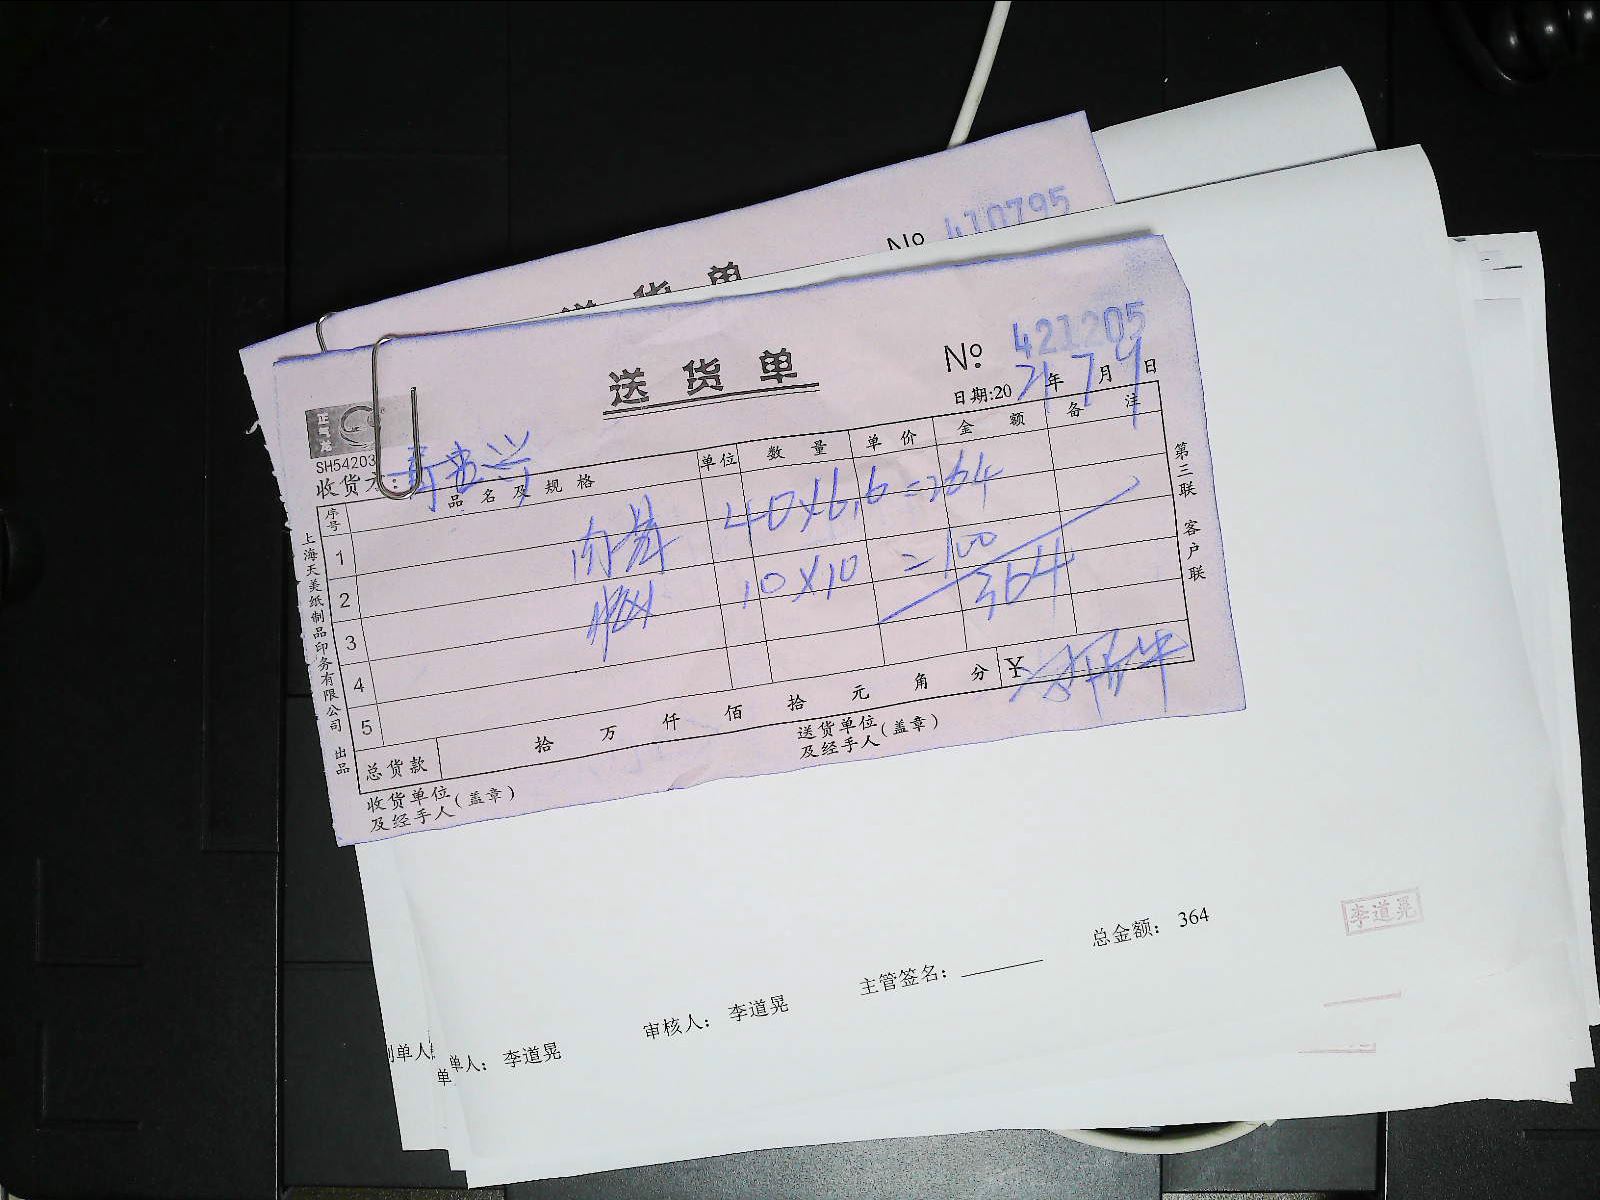 No 410795
送货单
送货单
No 421205
日期:2021年7月9日
正真彩
SH54203
收货方:
序号 品名及规格 单位 数量 单价 金额 备注
1 40×6.6=264
2 10×10=100
3 364
4
5
总货款 拾 万 仟 佰 拾 元 角 分 ¥
收货单位及经手人(盖章)
送货单位及经手人(盖章)
上海天美纸制品印务有限公司 出品
第三联 客户联
总金额: 364
李道晃
主管签名:
审核人: 李道晃
单人: 李道晃
制单人
单